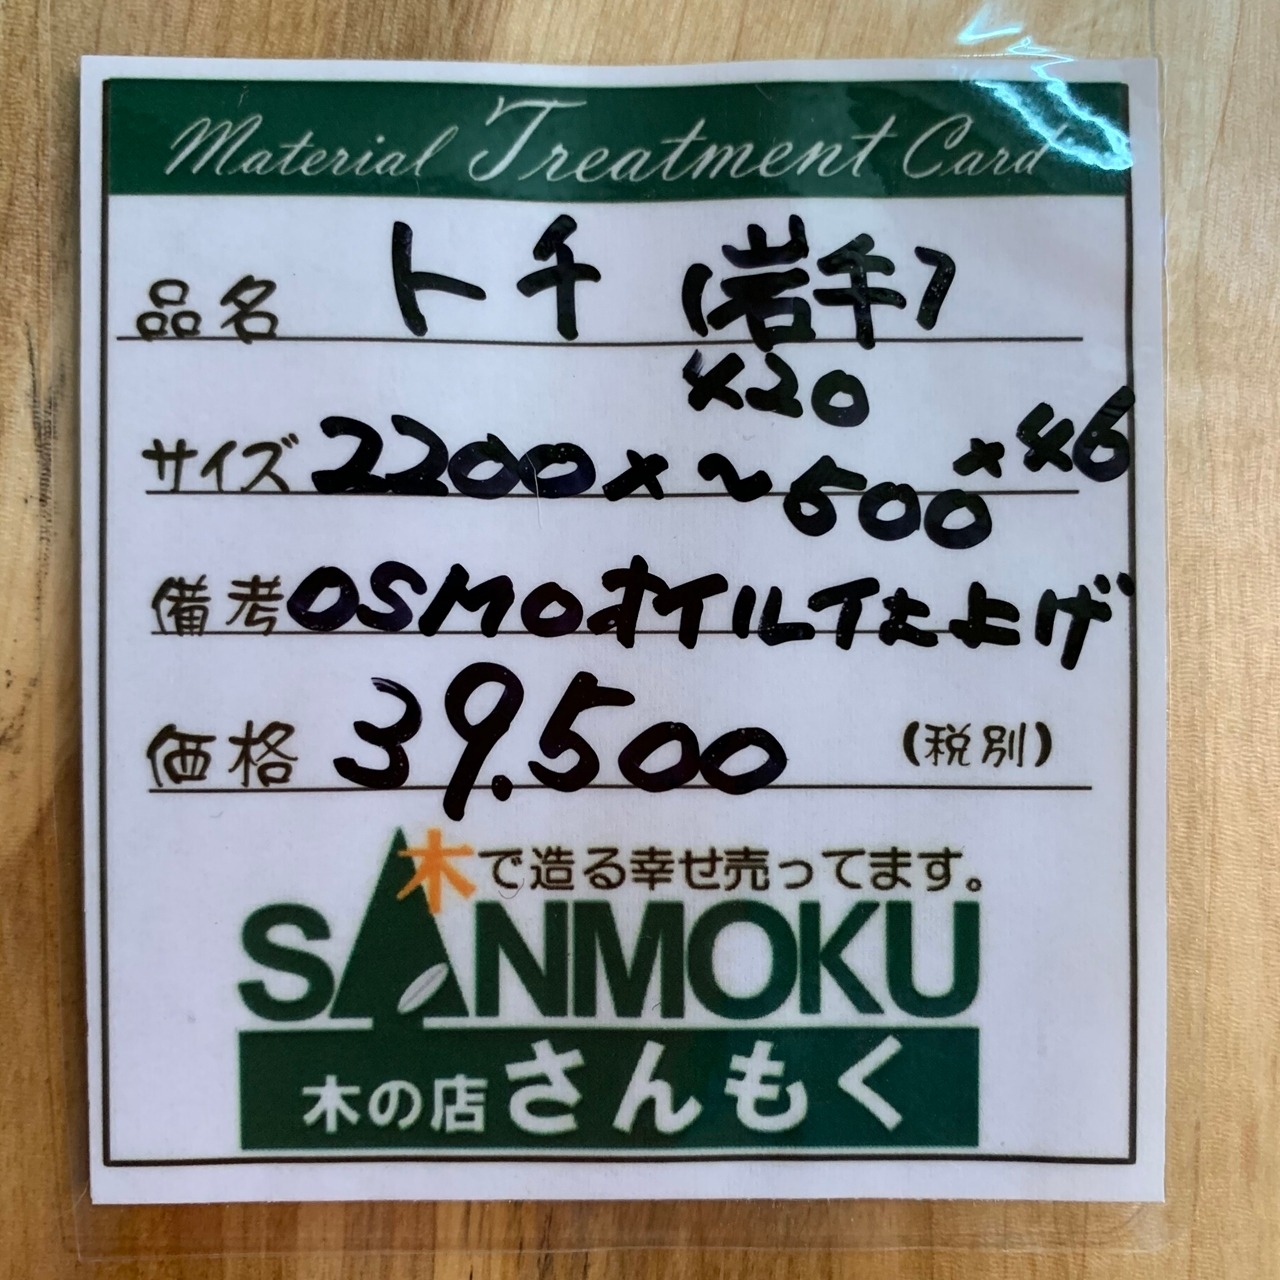 Material Treatment Card
品名 トチ (岩手)
420
サイズ 2200×~500×46
備考 OSMOオイル仕上げ
価格 39,500 (税別)
木で造る幸せ売ってます。
SANMOKU
木の店さんもく